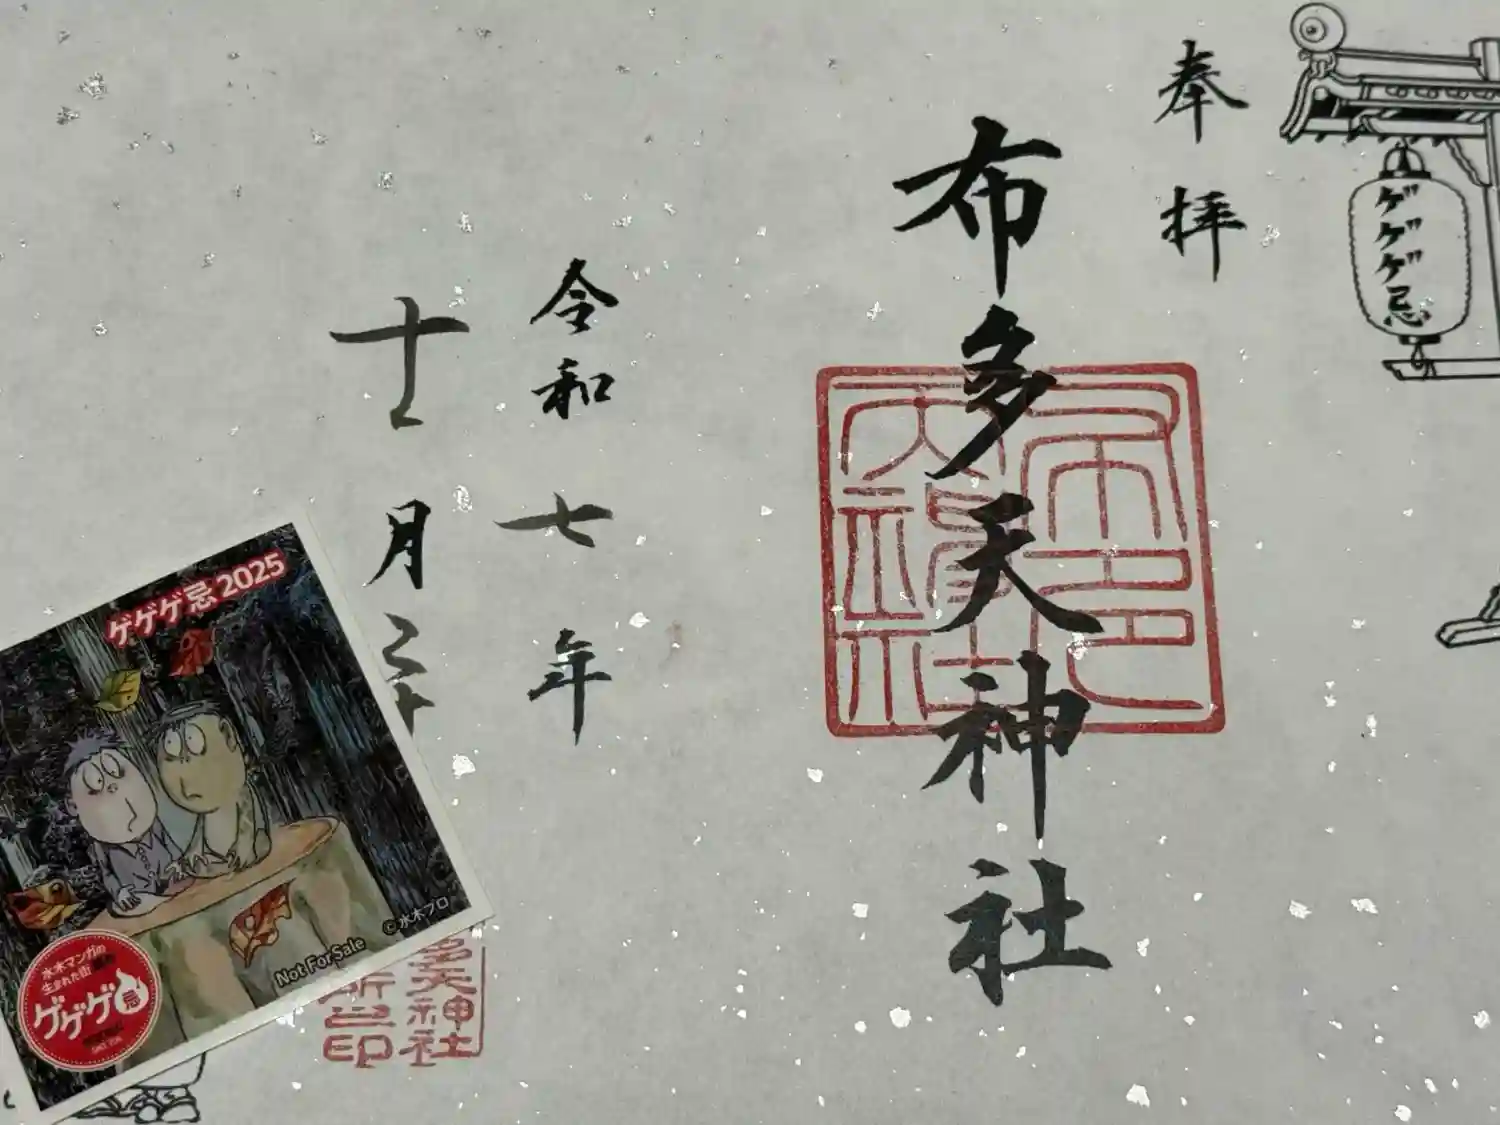 ゲゲゲ忌
奉拝
布多天神社
令和七年
十月二十
ゲゲゲ忌2025
水木マンガの
生まれた街
ゲゲゲ忌
Not For Sale
©水木プロ
多天神社
所之印